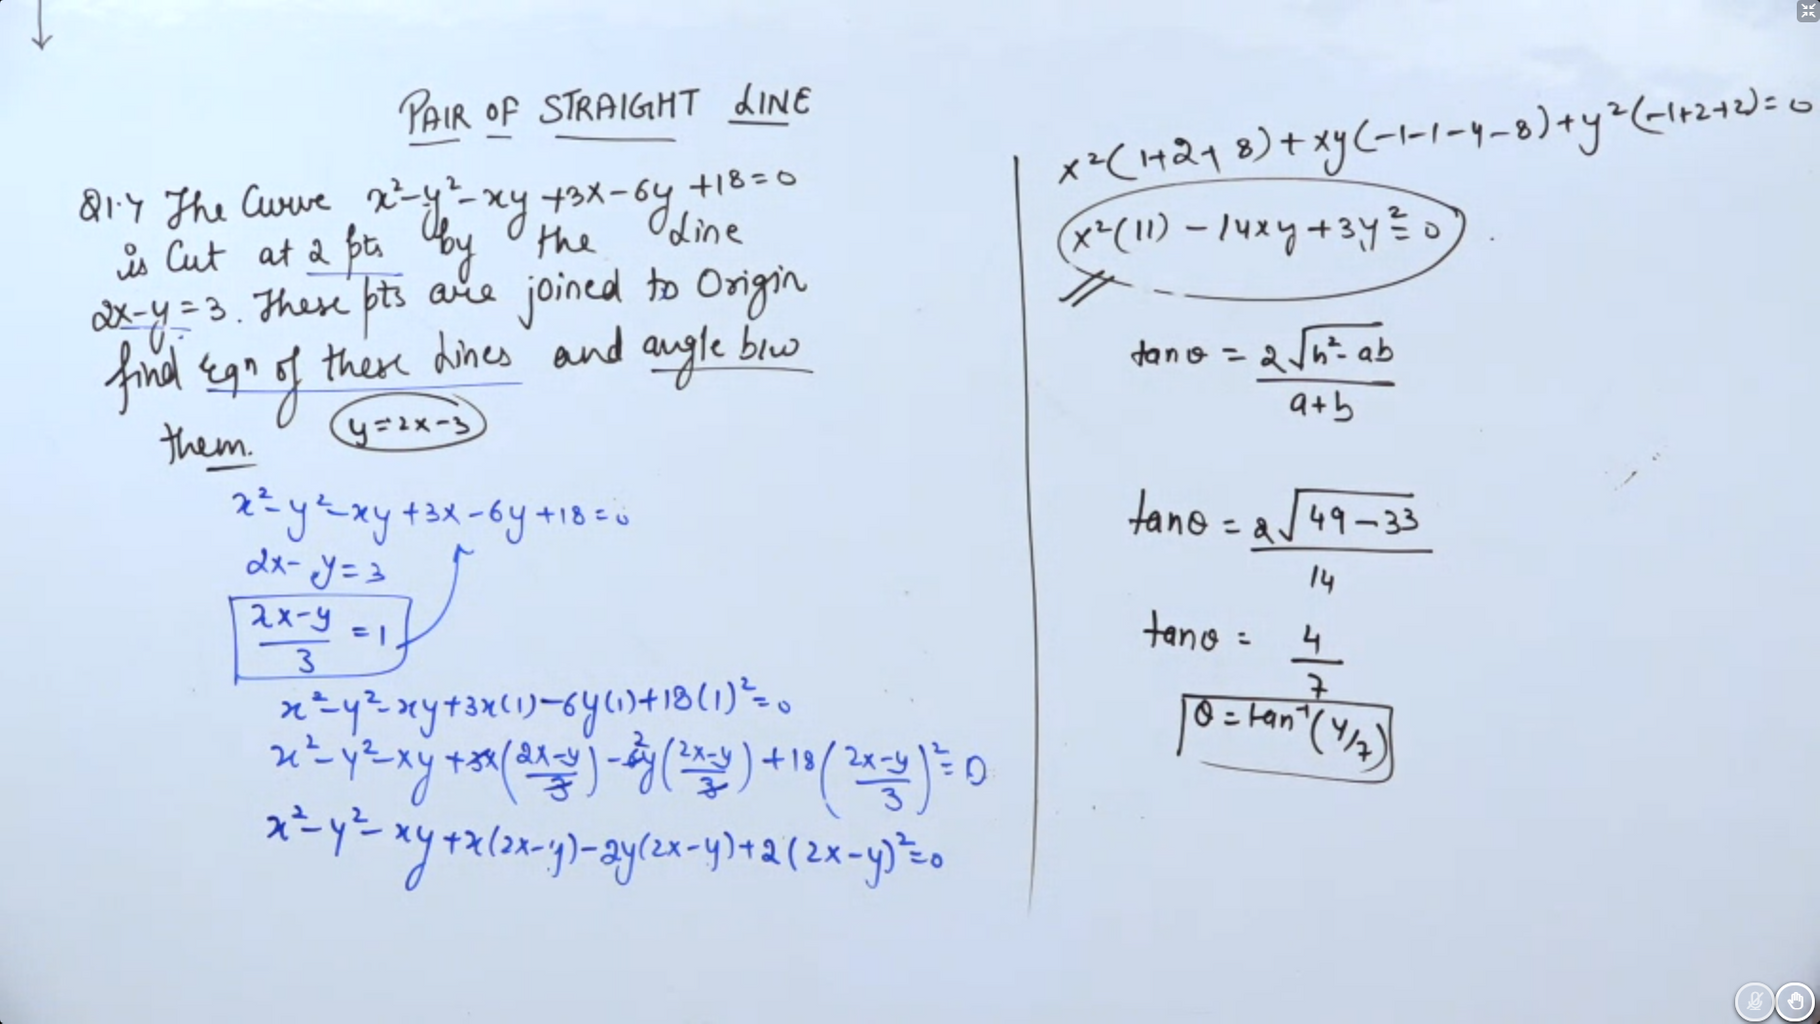 PAIR OF STRAIGHT LINE
Q1.7 The Curve x²-y²-xy+3x-6y+18=0
is Cut at 2 pts by the Line
2x-y=3. These pts are joined to Origin
find Eqn of these Lines and angle b/w
them.
y=2x-3
x²-y²-xy+3x-6y+18=0
2x-y=3
(2x-y)/3 = 1
x²-y²-xy+3x(1)-6y(1)+18(1)²=0
x²-y²-xy+3x((2x-y)/3)-6y((2x-y)/3)+18((2x-y)/3)²=0
x²-y²-xy+x(2x-y)-2y(2x-y)+2(2x-y)²=0
x²(1+2+8)+xy(-1-1-4-8)+y²(-1+2+2)=0
x²(11)-14xy+3y²=0
tanθ = 2√(h²-ab)/(a+b)
tanθ = 2√(49-33)/14
tanθ = 4/7
θ=tan⁻¹(4/7)